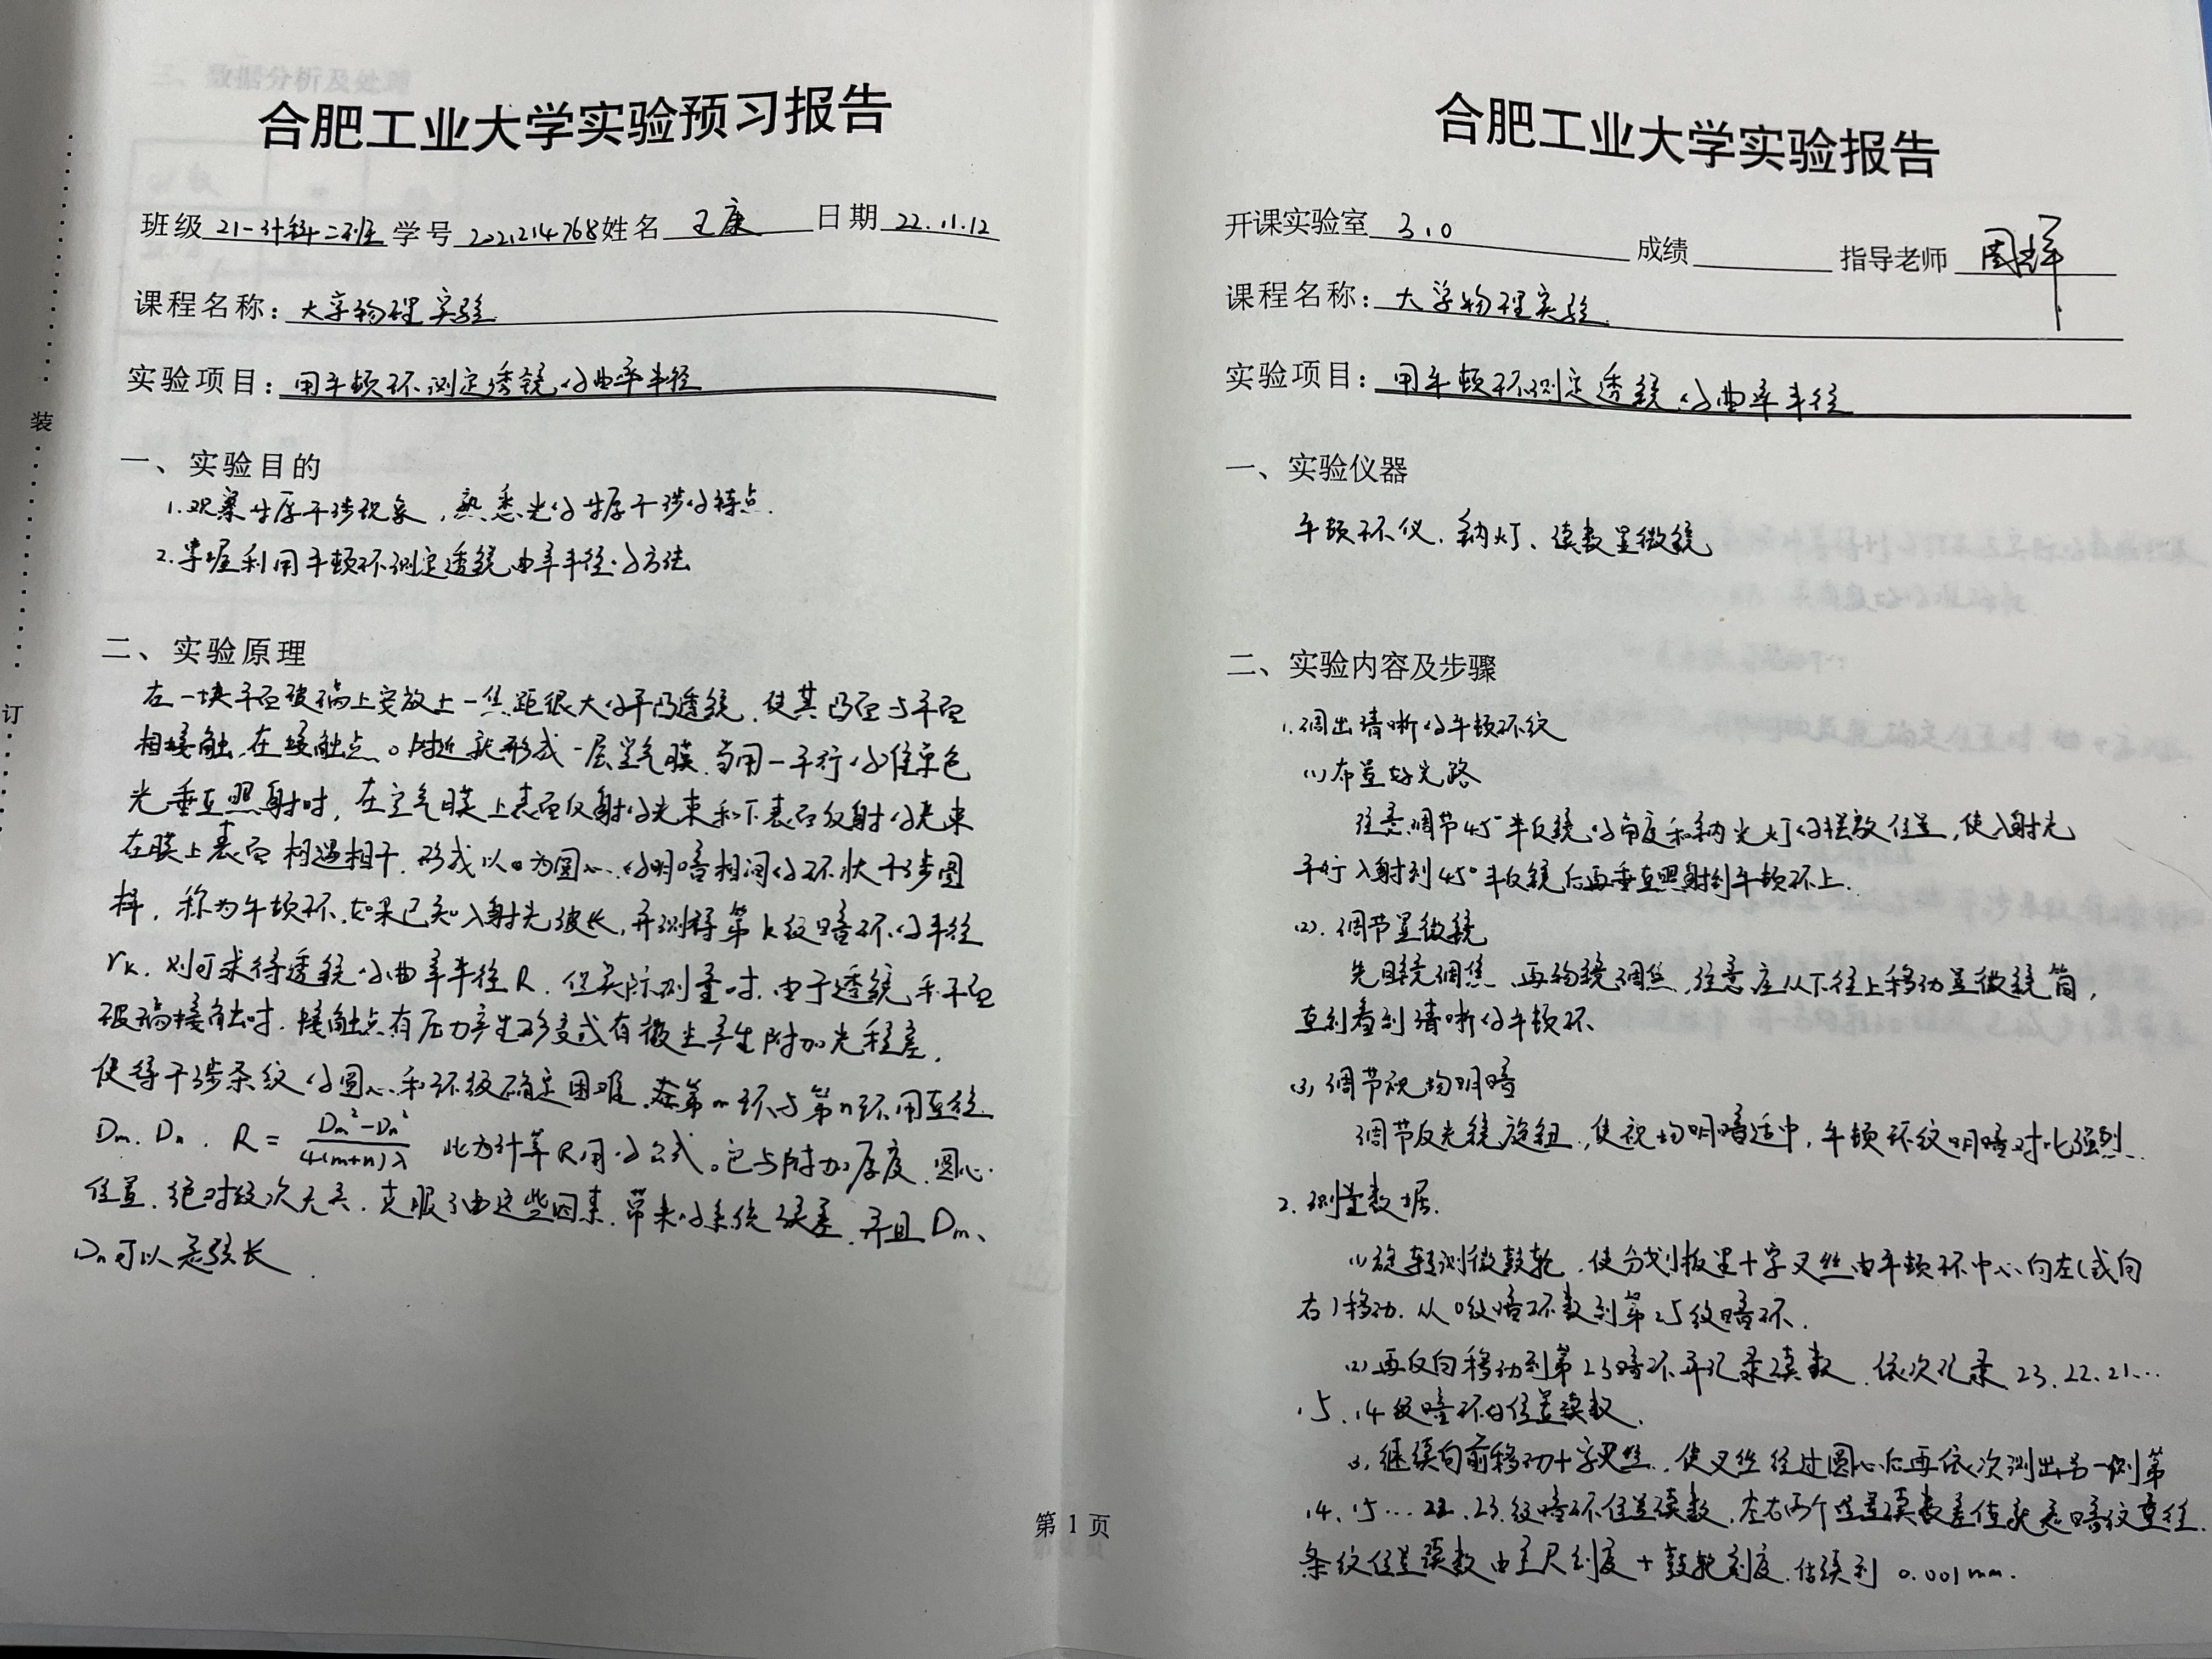 合肥工业大学实验预习报告
班级 21-计科二班 学号 2021214768 姓名 王康 日期 22.11.12
课程名称：大学物理实验
实验项目：用牛顿环测定透镜的曲率半径
装
订
一、实验目的
1.观察等厚干涉现象，熟悉光的等厚干涉的特点.
2.掌握利用牛顿环测定透镜曲率半径的方法
二、实验原理
在一块平面玻璃上安放上一焦距很大的平凸透镜，使其凸面与平面
相接触，在接触点o附近就形成一层空气膜，当用一平行的准单色
光垂直照射时，在空气膜上表面反射的光束和下表面反射的光束
在膜上表面相遇相干，形成以o为圆心的明暗相间的环状干涉图
样，称为牛顿环，如果已知入射光波长，并测得第k级暗环的半径
rk，则可求得透镜的曲率半径R，但实际测量时，由于透镜和平面
玻璃接触时，接触点有压力产生形变或有微尘产生附加光程差，
使得干涉条纹的圆心和环级确定困难，第m环与第n环用直径
Dm、Dn，R = Dm²-Dn² / 4(m+n)λ 此为计算R用的公式。它与附加厚度、圆心
位置、绝对级次无关，克服了由这些因素带来的系统误差，并且Dm、
Dn可以是弦长.
第 1 页
合肥工业大学实验报告
开课实验室 310 成绩 指导老师
课程名称：大学物理实验
实验项目：用牛顿环测定透镜的曲率半径
一、实验仪器
牛顿环仪、钠灯、读数显微镜
二、实验内容及步骤
1.调出清晰的牛顿环纹
(1)布置好光路
注意调节45°半反镜的角度和钠光灯的摆放位置，使入射光
平行入射到45°半反镜后再垂直照射到牛顿环上.
(2).调节显微镜
先目镜调焦、再物镜调焦，注意应从下往上移动显微镜筒，
直到看到清晰的牛顿环
(3)调节视均明暗
调节反光镜旋钮，使视均明暗适中，牛顿环纹明暗对比强烈.
2.测量数据.
(1)旋转测微鼓轮，使分划板里十字叉丝由牛顿环中心向左(或向
右)移动，从0级暗环数到第25级暗环.
(2)再反向移动到第23暗环并记录读数，依次记录 23、22、21…
15、14级暗环的位置读数.
(3)继续向前移动十字叉丝，使叉丝经过圆心后再依次测出另一侧第
14、15…22、23级暗环位置读数，左右两个位置读数差值就是暗纹直径.
条纹位置读数由主尺刻度+鼓轮刻度，估读到 0.001mm.